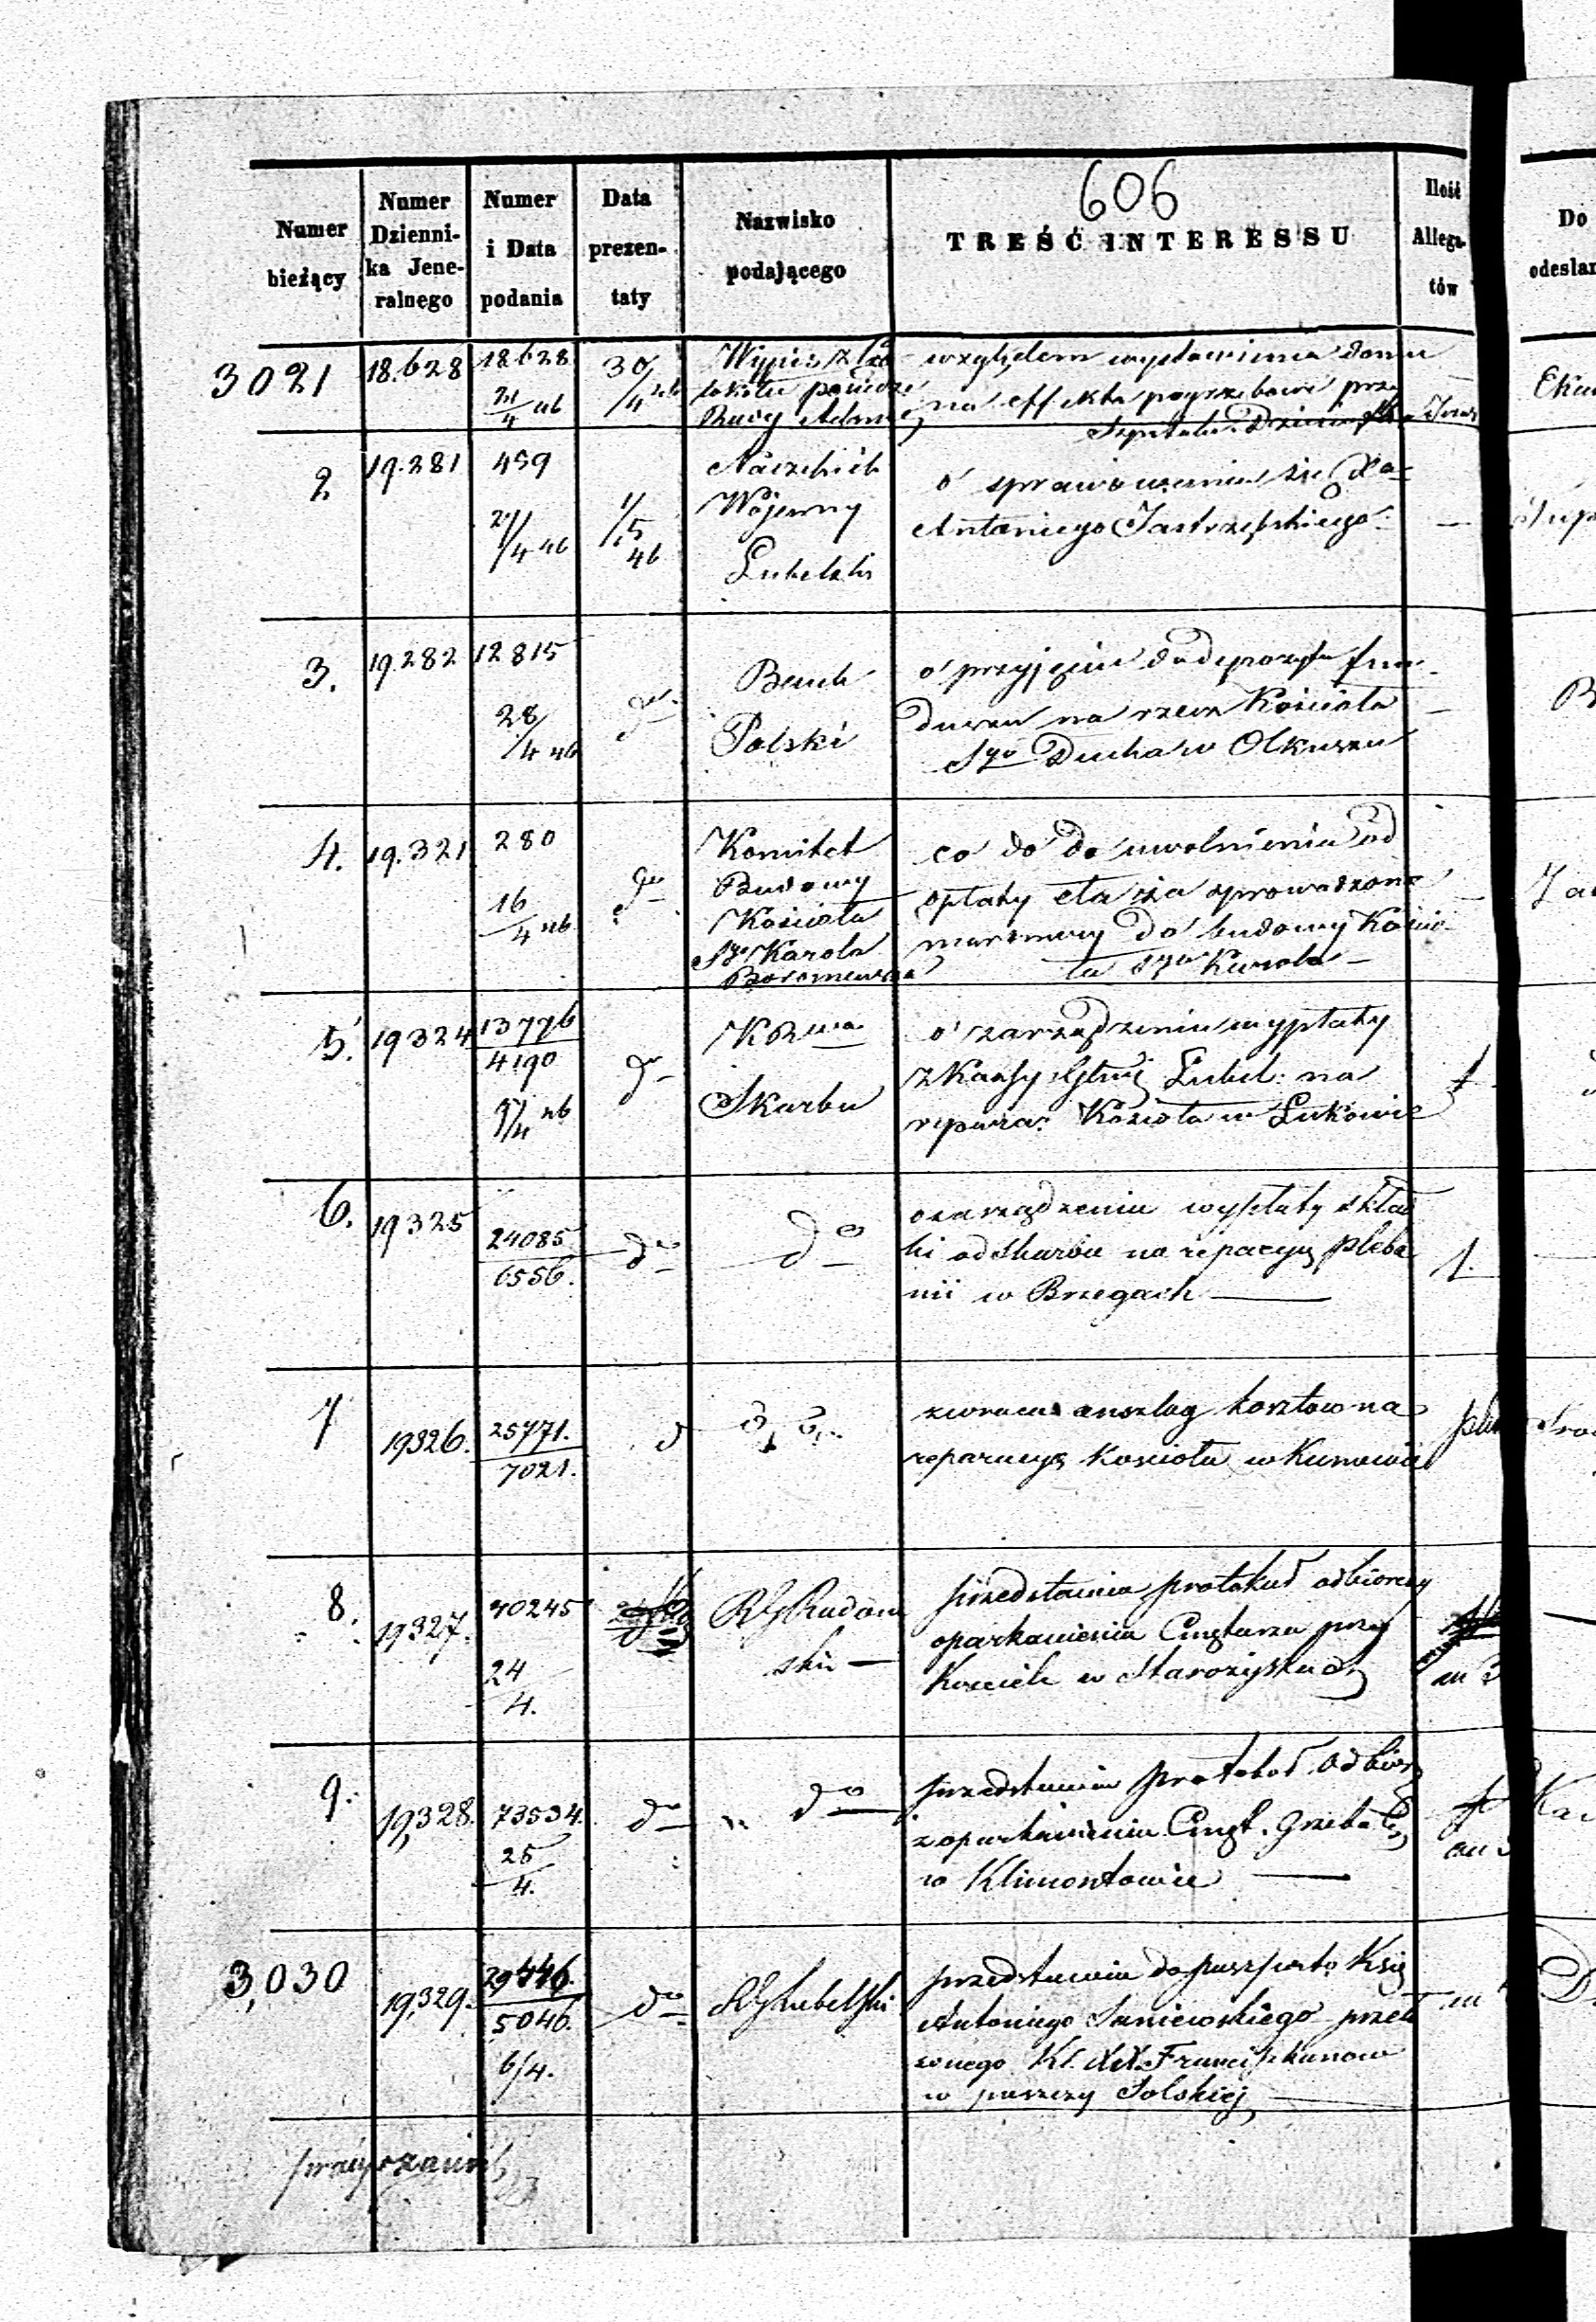 606
Numer bieżący
Numer Dzienni-ka Jene-ralnego
Numer i Data podania
Data prezen-taty
Nazwisko podającego
TREŚĆ INTERESSU
Ilość Allega-tów
Do
odesłan
3021
18.628
18628
21/4 46
30/4 46
Wypis z
Rady Admin
względem wystawienia domu
na effekta pogrzebowe przy
Szpitalu Dziecią
2
19.281
459
21/4 46
1/5 46
Naczelnik
Wojenny
Lubelski
o sprawowaniu się Xa
Antoniego Jastrzębskiego
3.
19.282
12815
28/4 46
do
Bank
Polski
o przyjęciu do depozytu fun-
duszu na rzecz Kościoła
Sgo Ducha w Olkuszu
4.
19.321
280
16/4 46
do
Komitet
Budowy
Kościoła
Sgo Karola
Boromeusza
co do do uwolnienia od
opłaty cła za sprowadzone
marmury do budowy Kościo-
ła Sgo Karola
5.
19324
13776
4190
9/4 46
do
KRwa
Skarbu
o zarządzeniu wypłaty
z Kassy Głwej Lubel: na
repara: Kościoła w Łukowie
1
6.
19325
24085
6556.
do
do
o zarządzeniu wypłaty skład
ki od Skarbu na reparacyą pleba
nii w Brzegach
1.
7
19326.
25771.
7021.
d
do
zwraca anszlag kosztów na
reparacyą kościoła w Kunowie
8.
19327.
40245
24
4.
RG Radom
ski
przedstawia protokuł odbiorczy
oparkanienia Cmętarza przy
Kościele w Starożyskach
9.
19,328.
73534.
25
4.
do
do
przedstawia protokoł odbior
z oparkanienia Cmęt. Grzebal
w Klimontowie
3,030
19,329.
29446.
5046.
6/4.
do
RG Lubelski
przedstawia do paszportu Księ
Antoniego Saniewskiego przeło
żonego Kl. XX. Franciszkanow
w puszczy Solskiej